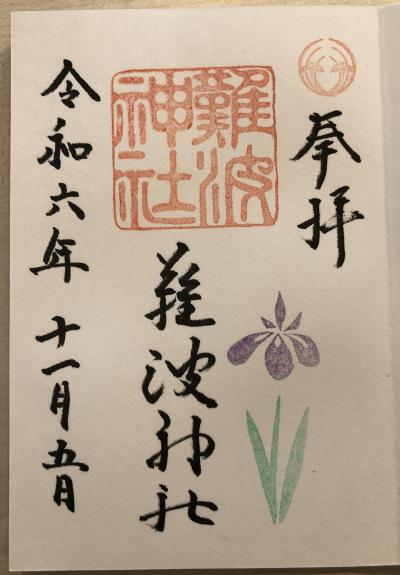 奉拝
難波神社
難波神社
令和六年 十一月五日